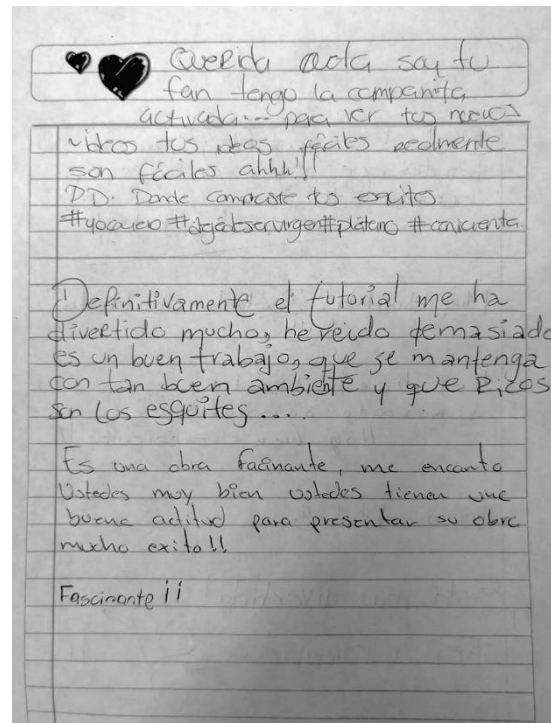 Querida acta soy tu
fan tengo la campanita
activada... para ver tus nuevos
videos tus ideas fáciles realmente
son fáciles ahhh!!
PD. Donde compraste tus esquites
#yoquiero #dejédeservirgen #plátano #
Definitivamente el tutorial me ha
divertido mucho, he reido demasiado
es un buen trabajo, que se mantenga
con tan buen ambiente y que Ricos
son los esquites....
Es una obra facinante, me encanto
Ustedes muy bien ustedes tienen une
buena actitud para presentar su obra
mucho exito!!
Fascinante ¡¡